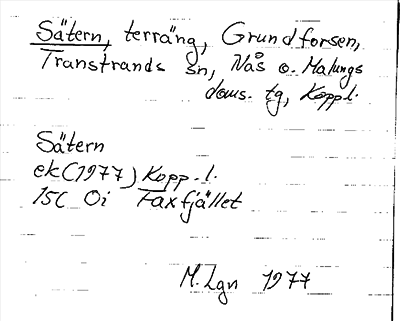 Sätern, terräng, Grundforsen,
Transtrands sn, Nås o. Malungs
doms. tg, Koppl.
Sätern
ek (1977) Kopp. l.
15C Oi Faxfjället
M. Lgn 1977